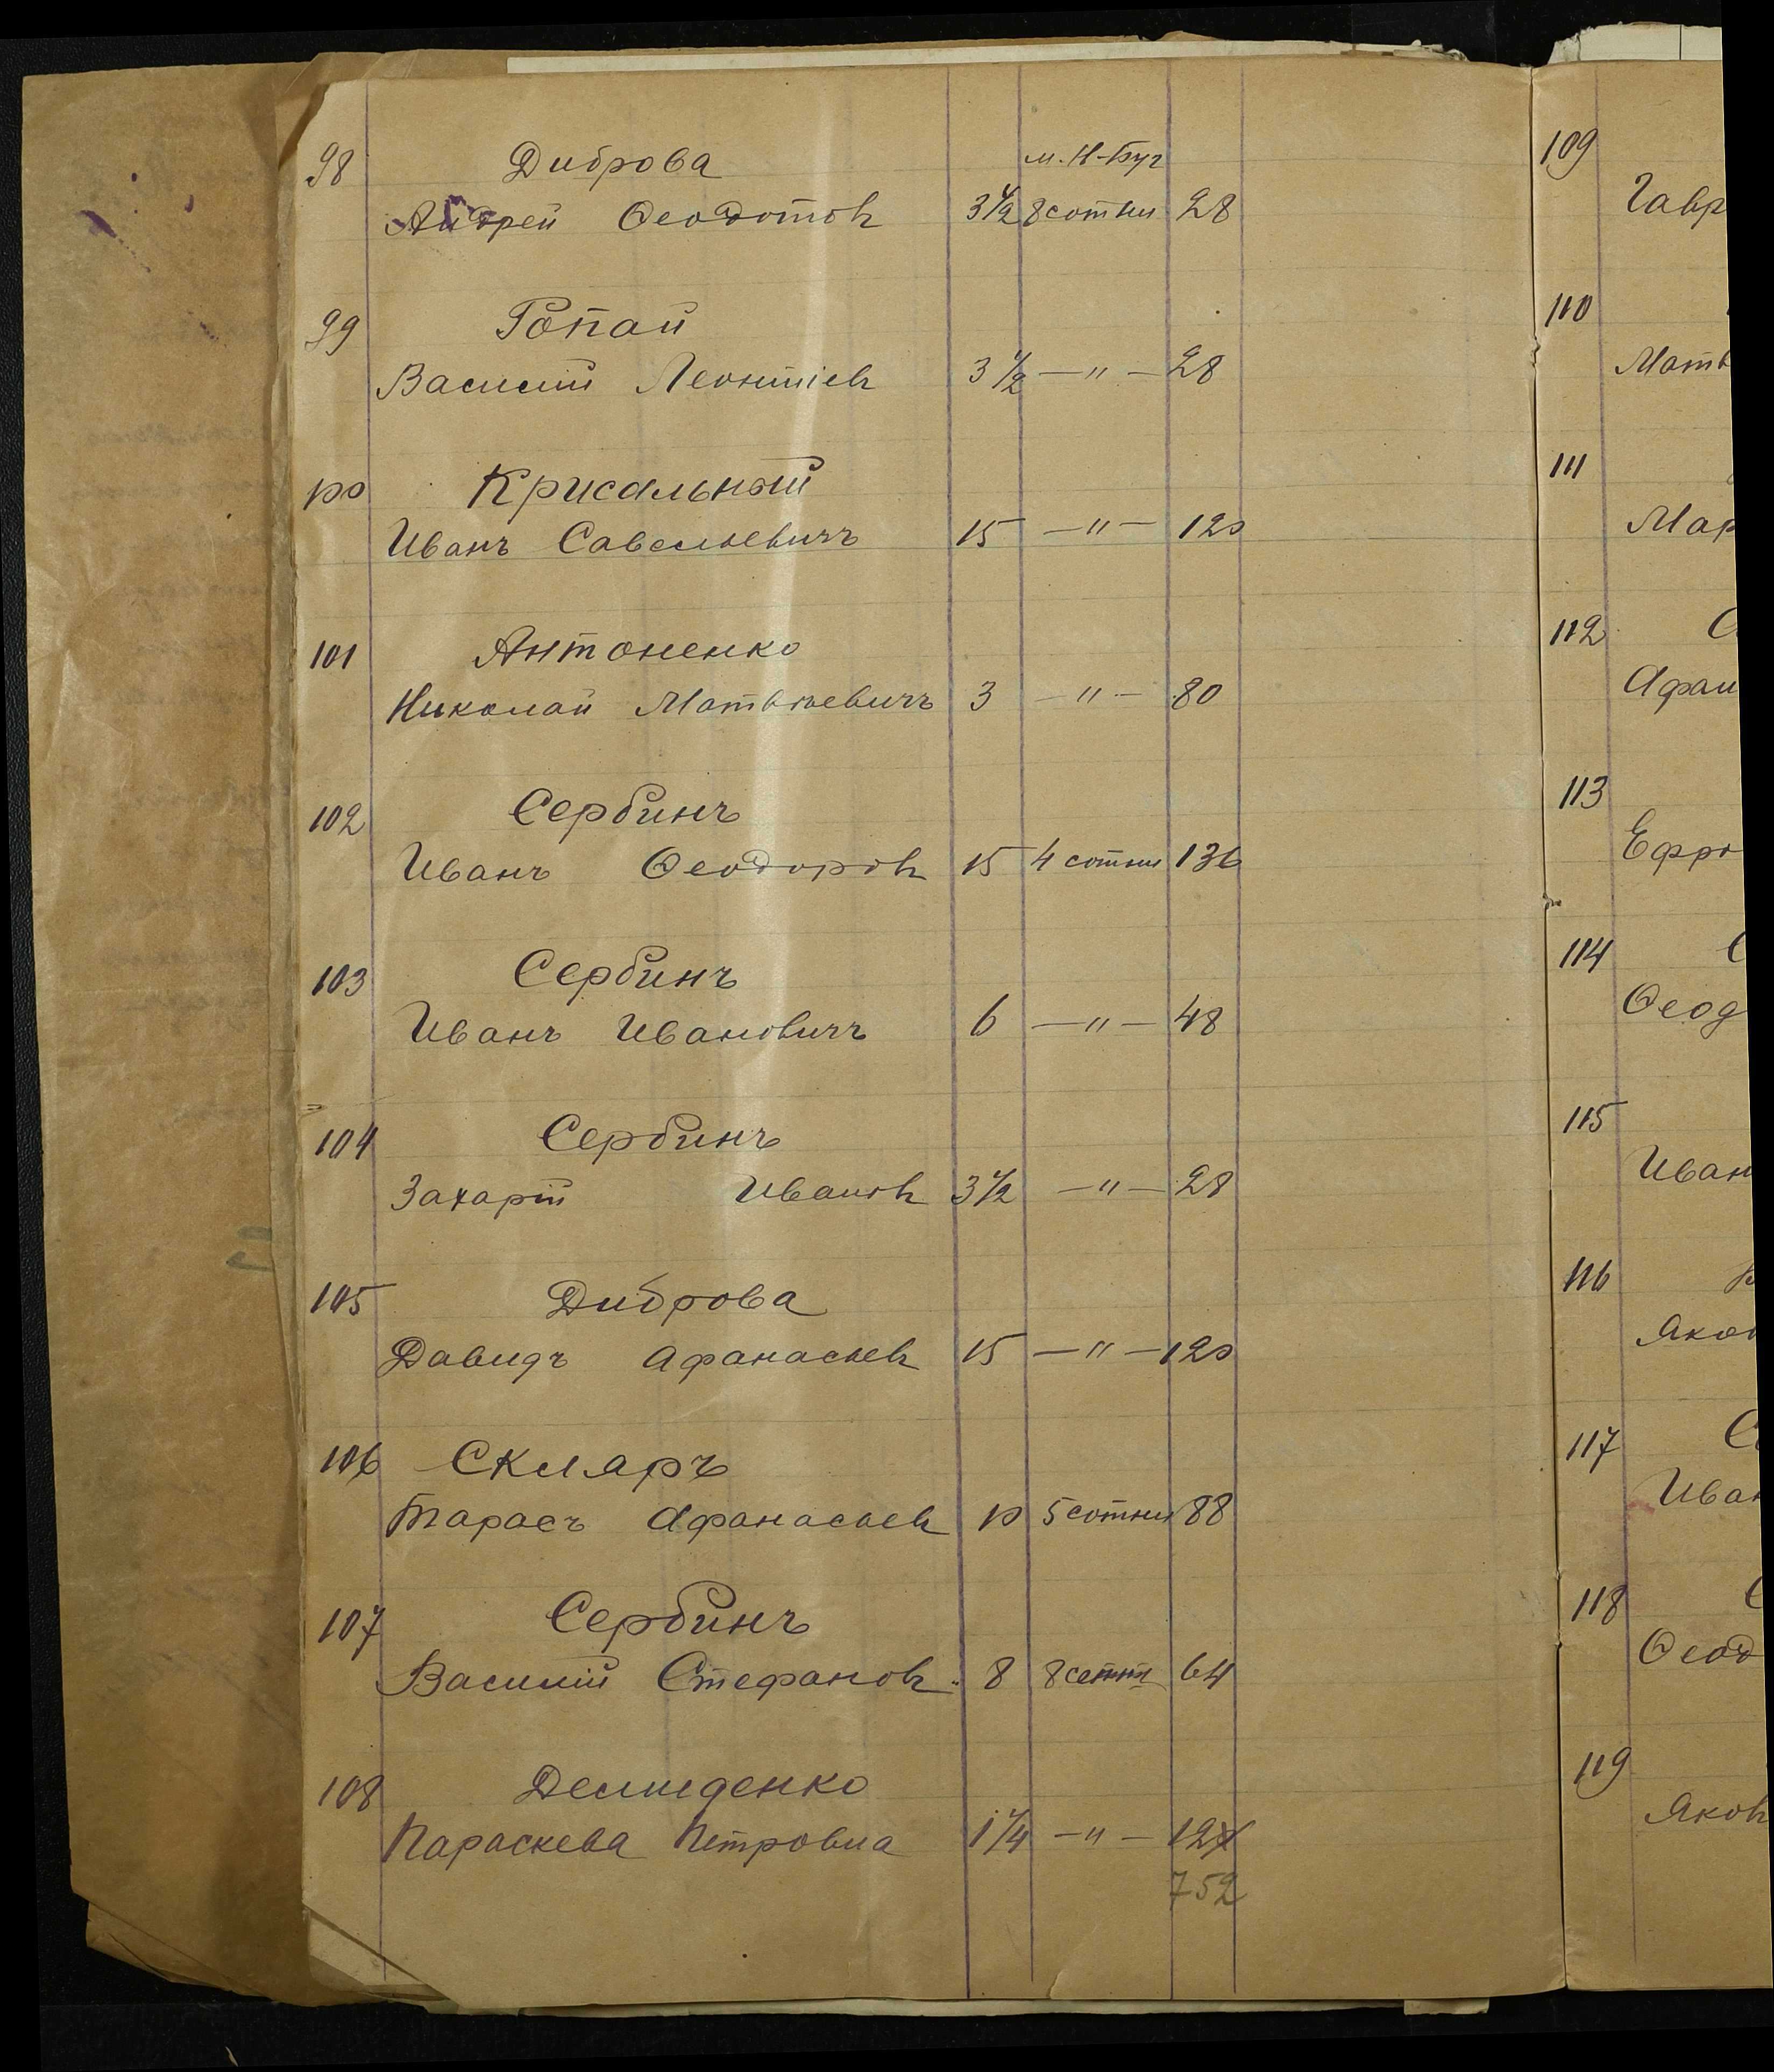 м. Н-Буг
98 Диброва
Андрей Ѳеодотов 3 1/2 8 сотни 28
99 Гопай
Василий Леонтіев 3 1/2 — " — 28
100 Крисальный
Иванъ Савельевичъ 15 — " — 120
101 Антоненко
Николай Матвѣевичъ 3 — " — 80
102 Сербинъ
Иванъ Ѳеодоров 15 4 сотни 136
103 Сербинъ
Иванъ Ивановичъ 6 — " — 48
104 Сербинъ
Захарій Иванов 3 1/2 — " — 28
105 Диброва
Давидъ Афанасьев 15 — " — 120
106 Скляръ
Тарасъ Афанасьев 10 5 сотни 88
107 Сербинъ
Василій Стефанов 8 8 сотни 64
108 Демиденко
Параскева Петровна 1 1/4 — " — 12
752
109
Гавр
110
Матв
111
Мар
112 С
Афан
113
Ефро
114 С
Ѳеод
115
Иван
116
Яков
117 С
Иван
118 С
Ѳеод
119
Яков